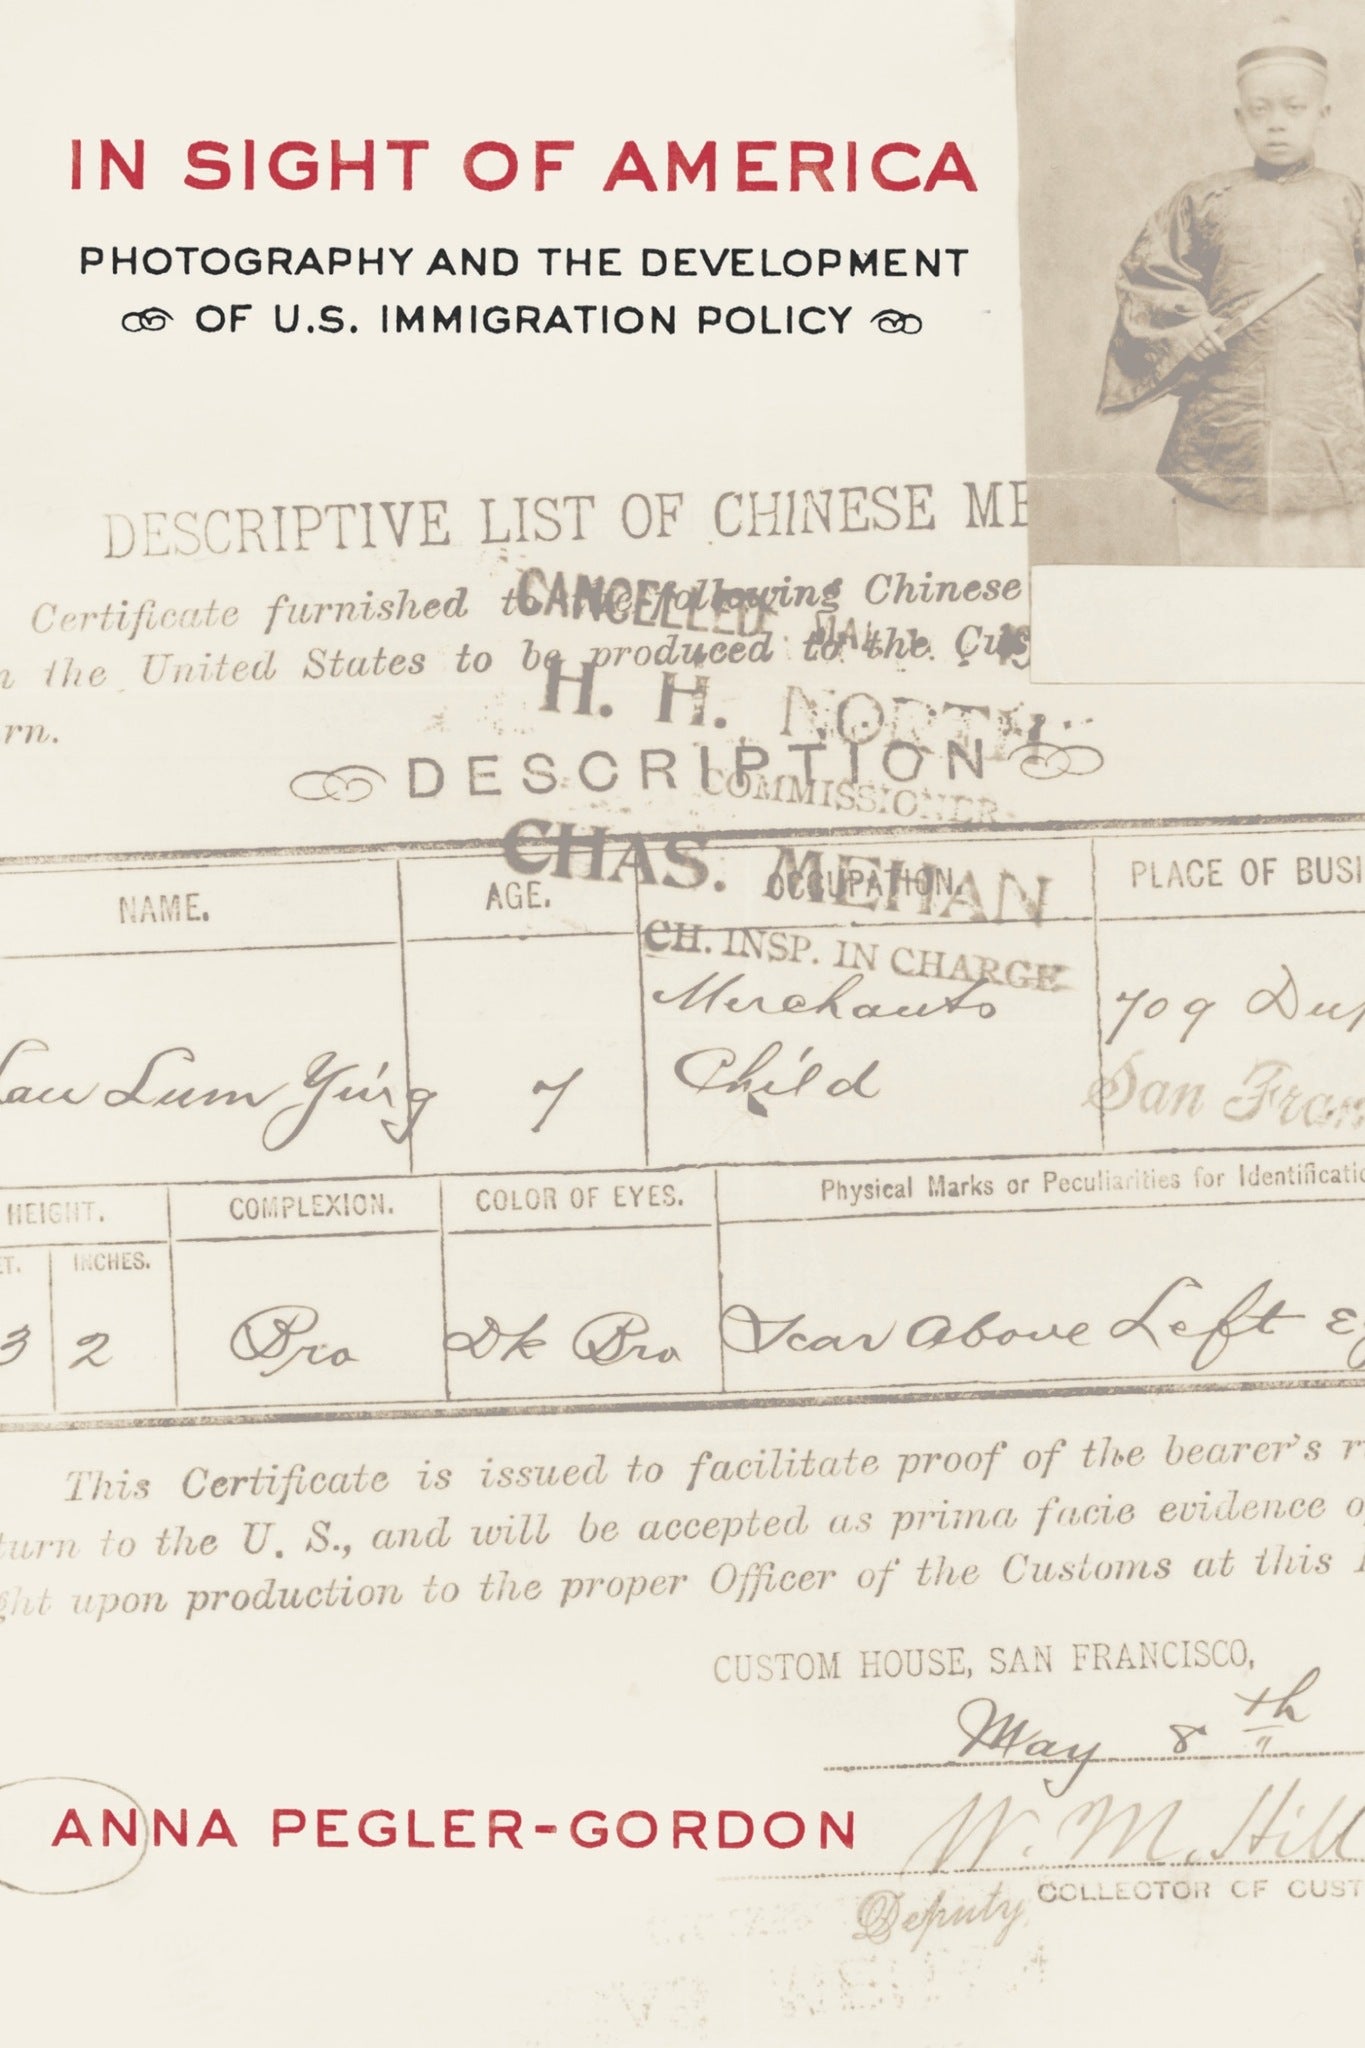 IN SIGHT OF AMERICA
PHOTOGRAPHY AND THE DEVELOPMENT
OF U.S. IMMIGRATION POLICY
DESCRIPTIVE LIST OF CHINESE ME
Certificate furnished to the following Chinese
CANCELLED
in the United States to be produced to the Cus
rn.
H. H. NORTH
DESCRIPTION
COMMISSIONER
CHAS. MEHAN
CH. INSP. IN CHARGE
NAME. AGE. OCCUPATION. PLACE OF BUSI
Lau Lum Ying 7 Merchants Child 709 Dup
San Fran
HEIGHT. COMPLEXION. COLOR OF EYES. Physical Marks or Peculiarities for Identificatio
ET. INCHES.
3 2 Bro Dk Bro Scar Above Left Ey
This Certificate is issued to facilitate proof of the bearer's r
turn to the U. S., and will be accepted as prima facie evidence o
ght upon production to the proper Officer of the Customs at this
CUSTOM HOUSE, SAN FRANCISCO,
May 8th
ANNA PEGLER-GORDON
W. M. Hill
Deputy COLLECTOR OF CUST